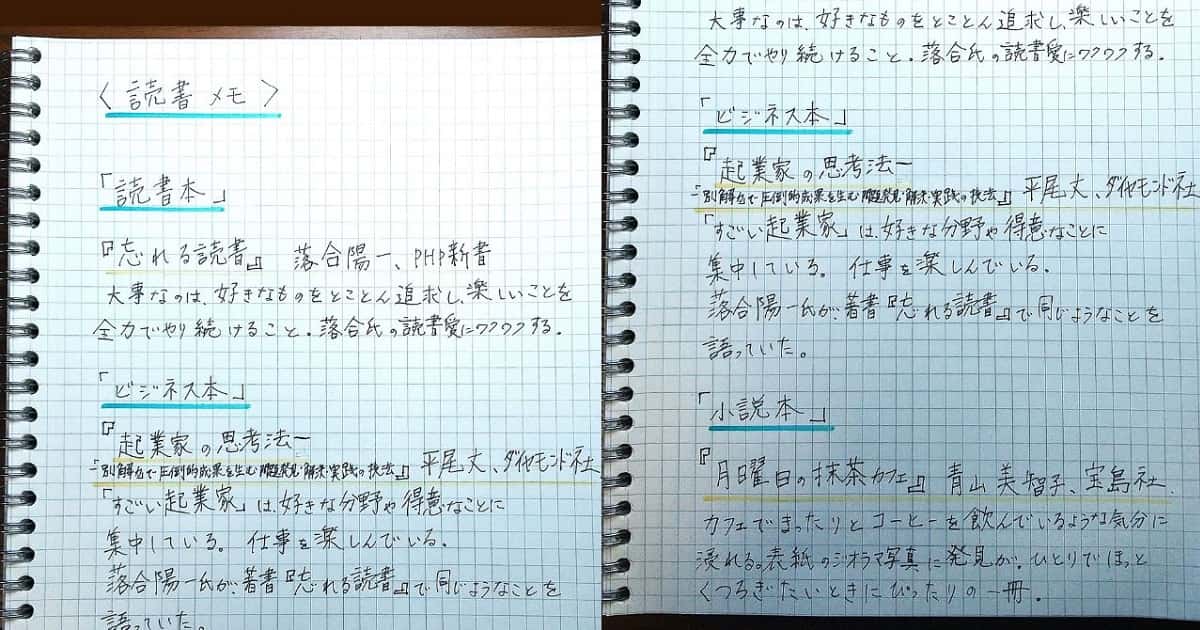 〈 読書 メモ 〉
「読書本」
『忘れる読書』 落合陽一、PHP新書
大事なのは、好きなものをとことん追求し、楽しいことを
全力でやり続けること。落合氏の読書愛にワクワクする。
「ビジネス本」
『起業家の思考法ー
「別解力」で圧倒的成果を生む問題発見・解決・実践の技法』 平尾丈、ダイヤモンド社
「すごい起業家」は、好きな分野や得意なことに
集中している。 仕事を楽しんでいる。
落合陽一氏が、著書『忘れる読書』で同じようなことを
語っていた。
大事なのは、好きなものをとことん追求し、楽しいことを
全力でやり続けること。落合氏の読書愛にワクワクする。
「ビジネス本」
『起業家の思考法ー
「別解力」で圧倒的成果を生む問題発見・解決・実践の技法』 平尾丈、ダイヤモンド社
「すごい起業家」は、好きな分野や得意なことに
集中している。 仕事を楽しんでいる。
落合陽一氏が、著書『忘れる読書』で同じようなことを
語っていた。
「小説本」
『月曜日の抹茶カフェ』 青山美智子、宝島社.
カフェでまったりとコーヒーを飲んでいるような気分に
浸れる。表紙のジオラマ写真に発見が。ひとりでほっと
くつろぎたいときにぴったりの一冊。